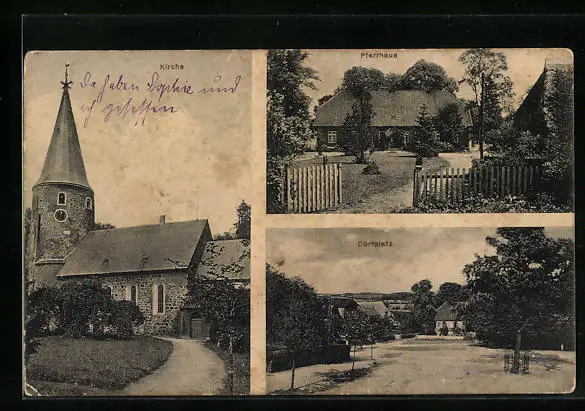 Kirche
Da haben Sophie und
ich gesessen.
Pfarrhaus
Dorfplatz